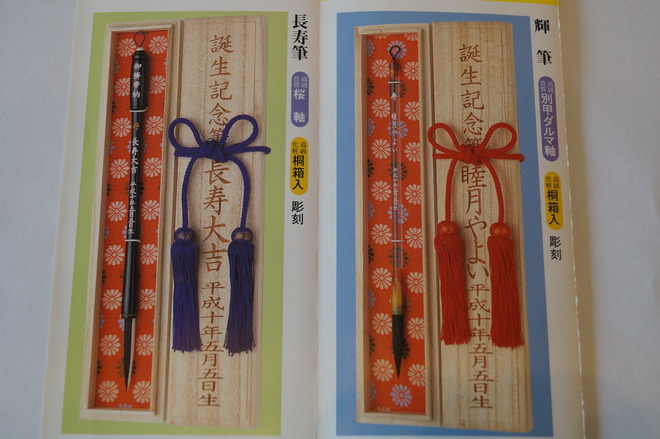 輝筆
高級
良質
別甲ダルマ軸
高級
化粧
桐箱入
彫刻
誕生記念筆 睦月やよい 平成十年五月五日生
睦月やよい 平成十年五月五日生
長寿筆
高級
良質
桜軸
高級
化粧
桐箱入
彫刻
誕生記念筆 長寿大吉 平成十年五月五日生
御臍帯納 長寿大吉 平成十年五月五日生